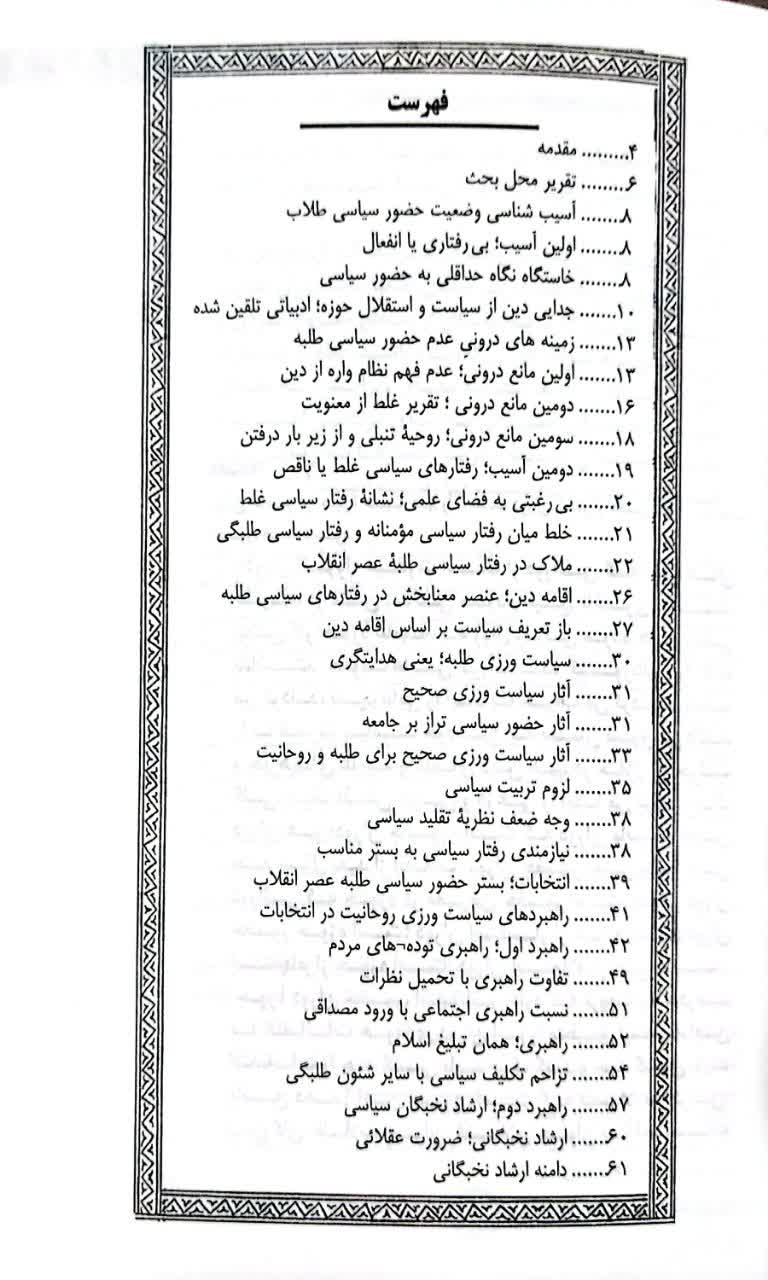 فهرست
۴......... مقدمه
۶........ تقریر محل بحث
۸....... آسیب شناسی وضعیت حضور سیاسی طلاب
۸....... اولین آسیب؛ بی‌رفتاری یا انفعال
۸....... خاستگاه نگاه حداقلی به حضور سیاسی
۱۰....... جدایی دین از سیاست و استقلال حوزه؛ ادبیاتی تلقین شده
۱۳....... زمینه های درونیِ عدم حضور سیاسی طلبه
۱۳....... اولین مانع درونی؛ عدم فهم نظام واره از دین
۱۶....... دومین مانع درونی ؛ تقریر غلط از معنویت
۱۸....... سومین مانع درونی؛ روحیهٔ تنبلی و از زیر بار درفتن
۱۹....... دومین آسیب؛ رفتارهای سیاسی غلط یا ناقص
۲۰....... بی‌رغبتی به فضای علمی؛ نشانهٔ رفتار سیاسی غلط
۲۱....... خلط میان رفتار سیاسی مؤمنانه و رفتار سیاسی طلبگی
۲۲....... ملاک در رفتار سیاسی طلبهٔ عصر انقلاب
۲۶....... اقامه دین؛ عنصر معنابخش در رفتارهای سیاسی طلبه
۲۷....... باز تعریف سیاست بر اساس اقامه دین
۳۰....... سیاست ورزی طلبه؛ یعنی هدایتگری
۳۱....... آثار سیاست ورزی صحیح
۳۱....... آثار حضور سیاسی تراز بر جامعه
۳۳....... آثار سیاست ورزی صحیح برای طلبه و روحانیت
۳۵....... لزوم تربیت سیاسی
۳۸....... وجه ضعف نظریهٔ تقلید سیاسی
۳۸....... نیازمندی رفتار سیاسی به بستر مناسب
۳۹....... انتخابات؛ بستر حضور سیاسی طلبه عصر انقلاب
۴۱....... راهبردهای سیاست ورزی روحانیت در انتخابات
۴۲....... راهبرد اول؛ راهبری توده¬های مردم
۴۹....... تفاوت راهبری با تحمیل نظرات
۵۱....... نسبت راهبری اجتماعی با ورود مصداقی
۵۲....... راهبری؛ همان تبلیغ اسلام
۵۴....... تزاحم تکلیف سیاسی با سایر شئون طلبگی
۵۷....... راهبرد دوم؛ ارشاد نخبگان سیاسی
۶۰....... ارشاد نخبگانی؛ ضرورت عقلائی
۶۱....... دامنه ارشاد نخبگانی